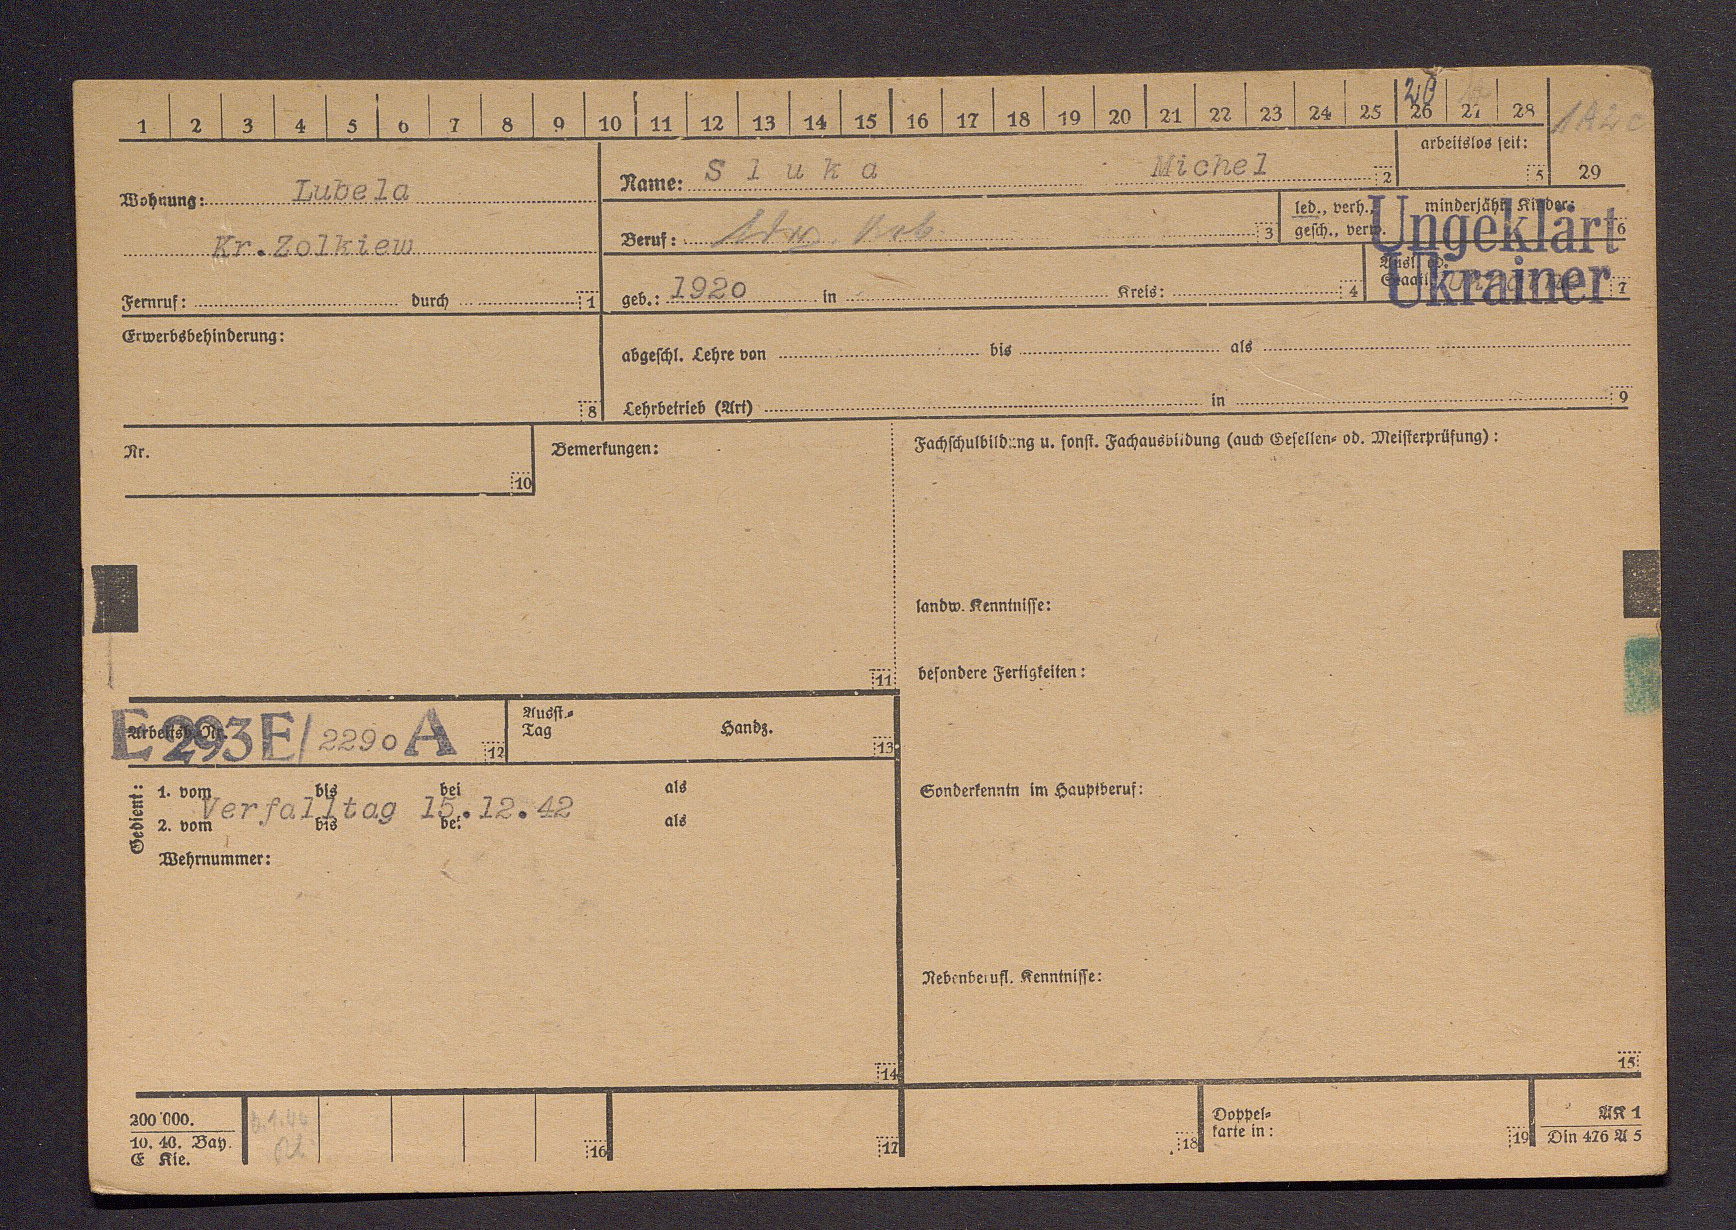 1 2 3 4 5 6 7 8 9 10 11 12 13 14 15 16 17 18 19 20 21 22 23 24 25 26 27 28
20
arbeitslos seit:
5
29
Wohnung: Lubela
Kr. Zolkiew
Fernruf: durch 1
Name: S l u k a Michel 2
Beruf: 3
led., verh.,
gesch., verw.
minderjähr. Kinder:
6
geb.: 1920 in Kreis: 4
Ungeklärt
Ukrainer
7
Erwerbsbehinderung:
8
abgeschl. Lehre von bis als
Lehrbetrieb (Art) in 9
Nr.
10
Bemerkungen:
11
Fachschulbildung u. sonst. Fachausbildung (auch Gesellen- od. Meisterprüfung):
landw. Kenntnisse:
besondere Fertigkeiten:
Sonderkenntn im Hauptberuf:
Nebenberufl. Kenntnisse:
15
Arbeitsb. Nr.
E 293 E/ 2290 A
12
Ausst.-
Tag
Handz.
13
Gedient:
1. vom bis bei als
Verfalltag 15.12.42
2. vom bis bei als
Wehrnummer:
14
200 000.
10. 40. Bay.
E Kie.
16
17
18
Doppel-
karte in:
19
AK 1
Din 476 A 5